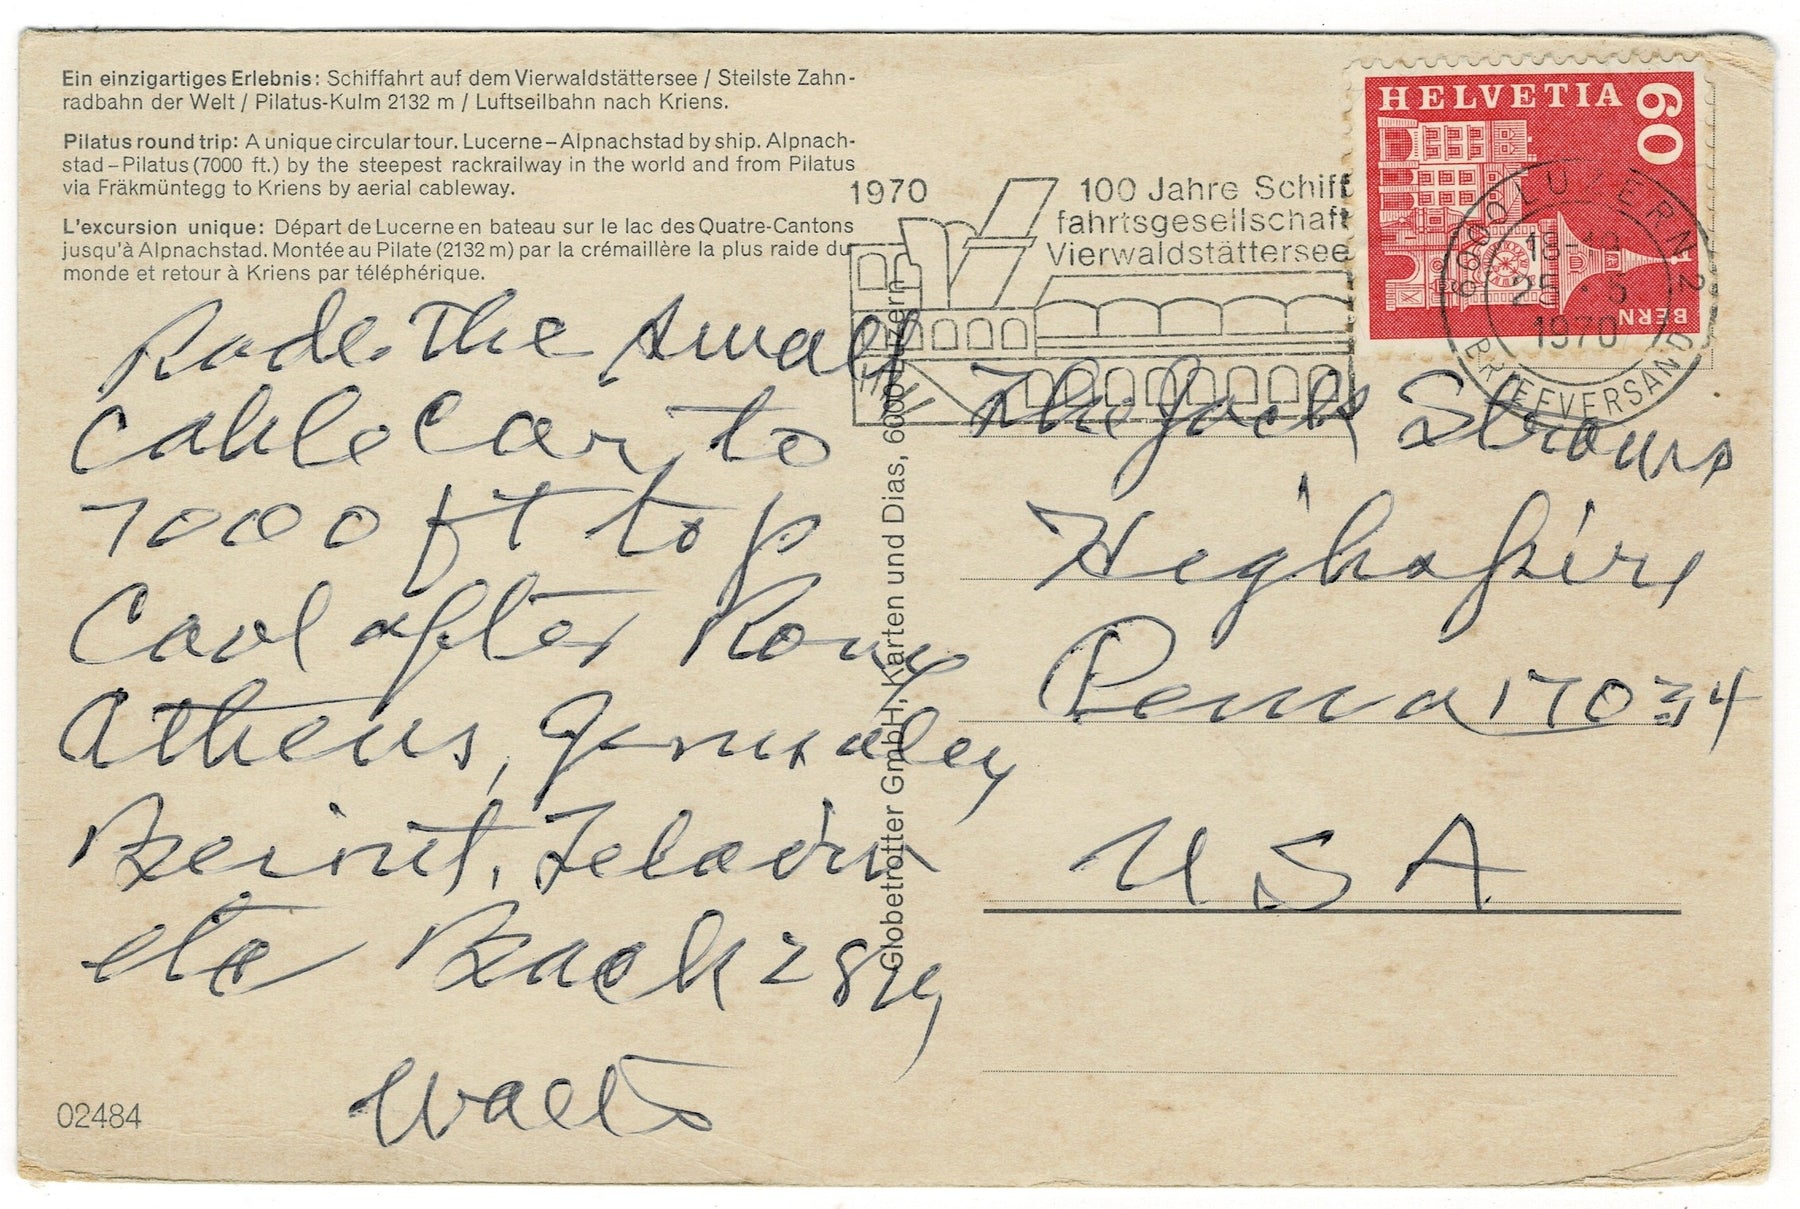 Ein einzigartiges Erlebnis: Schiffahrt auf dem Vierwaldstättersee / Steilste Zahn-
radbahn der Welt / Pilatus-Kulm 2132 m / Luftseilbahn nach Kriens.
Pilatus round trip: A unique circular tour. Lucerne – Alpnachstad by ship. Alpnach-
stad – Pilatus (7000 ft.) by the steepest rackrailway in the world and from Pilatus
via Fräkmüntegg to Kriens by aerial cableway.
L'excursion unique: Départ de Lucerne en bateau sur le lac des Quatre-Cantons
jusqu'à Alpnachstad. Montée au Pilate (2132 m) par la crémaillère la plus raide du
monde et retour à Kriens par téléphérique.
Rode the small
Cable Car to
7000 ft top
Cool after Rome
Athens,
Beirut,
etc Back 28th
Walts
02484
Globetrotter GmbH, Karten und Dias, 6000 Luzern
1970
100 Jahre Schiff
fahrtsgesellschaft
Vierwaldstättersee
HELVETIA
60
BERN
6000 LUZERN 2
18-19
25.-5
1970
BRIEFVERSAND
The Jack Strouss
Highspire
Penna 17034
USA